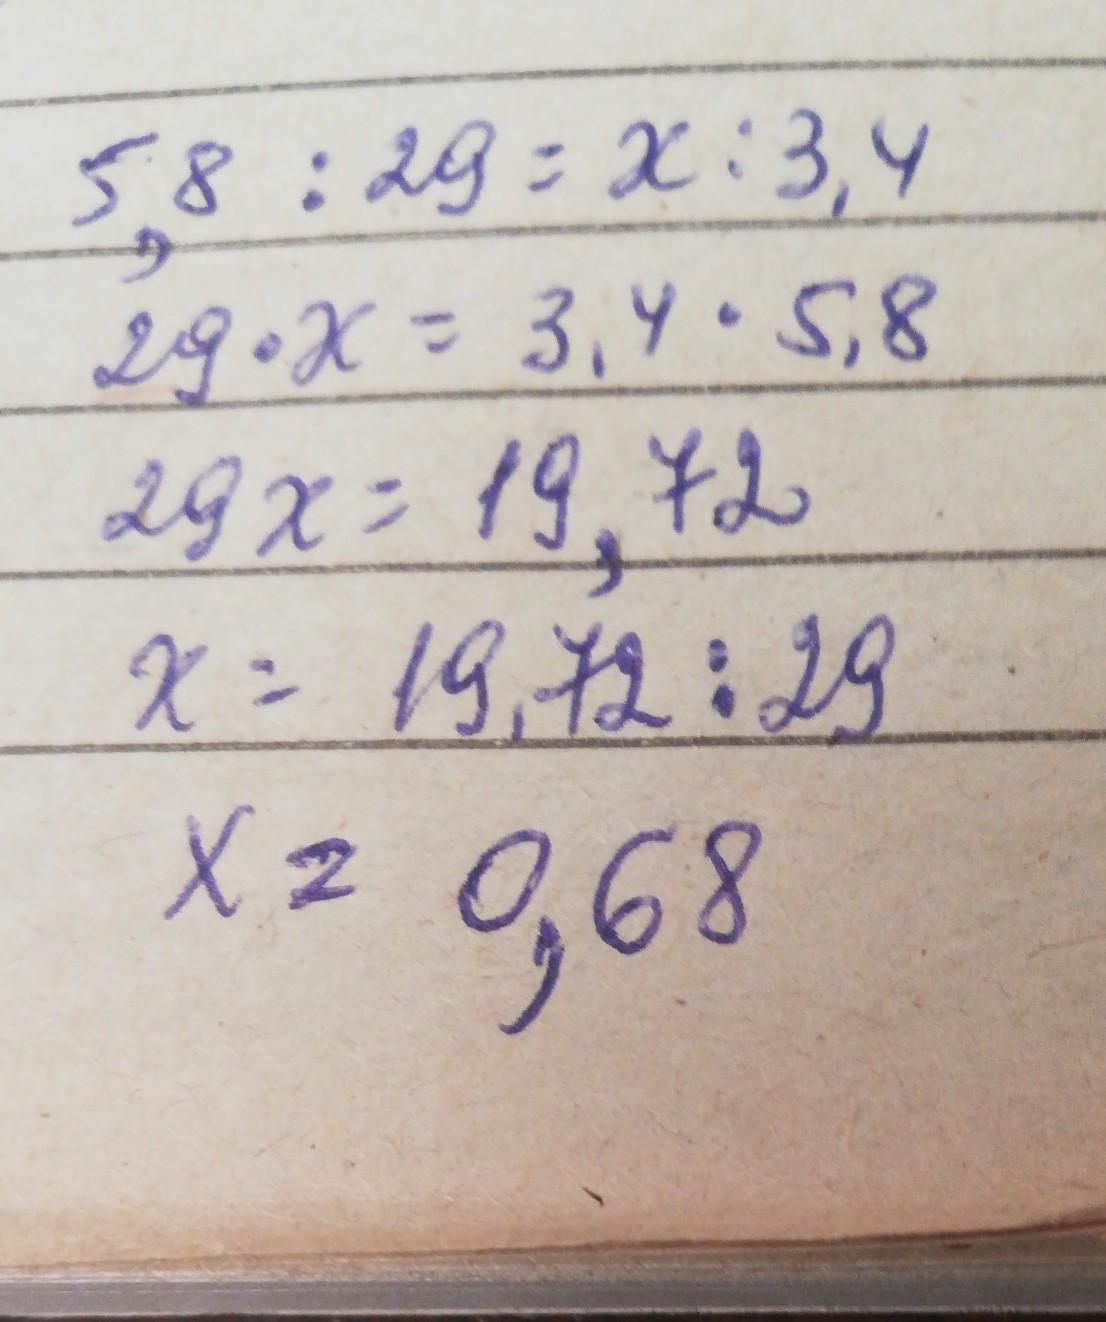 5,8 : 29 = x : 3,4
29 · x = 3,4 · 5,8
29x = 19,72
x = 19,72 : 29
x = 0,68